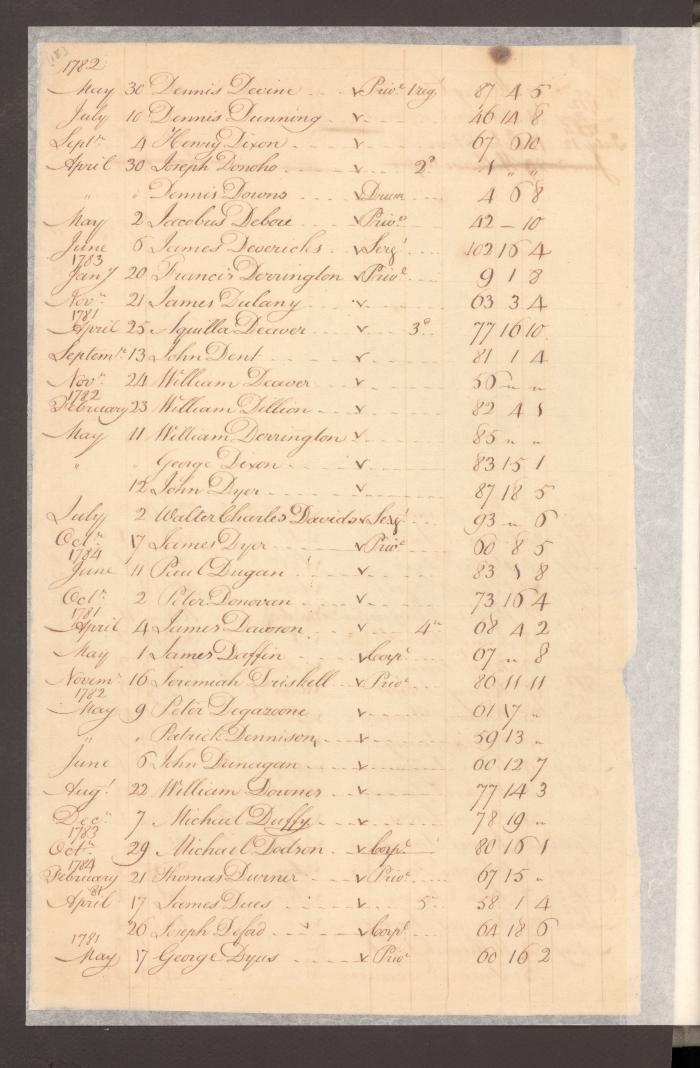 183
1782
May 30 Dennis Devine v Priv.e 1 reg.t 87 4 5
July 10 Dennis Dunning v 46 14 8
Sept.r 4 Henry Dixon v 67 6 10
April 30 Joseph Donoho v 2.d 1 " "
" " Dennis Downs v Drum 4 6 8
May 2 Jacobus Debore v Priv.e 42 – 10
June 6 James Devericks v Serg.t 102 16 4
1783
Jan.y 20 Francis Derrington v Priv.e 9 1 8
Nov.r 21 James Dulany v 63 3 4
1781
April 25 Aquilla Deaver v 3.d 77 16 10
Septem.r 13 John Dent v 81 1 4
Nov.r 24 William Deaver v 56 " "
1782
February 23 William Dillion v 82 4 1
May 11 William Derrington v 85 " "
" " George Dixon v 83 15 1
12 John Dyer v 87 18 5
July 2 Walter Charles Davids v Serg.t 93 " 6
Oct.r 17 James Dyer v Priv.e 60 8 5
1784
June 11 Paul Dugan v 83 1 8
Oct.r 2 Peter Donovan v 73 16 4
1781
April 4 James Dawson v 4.th 68 4 2
May 1 James Daffin v Corp.l 67 " 8
Novem.r 16 Jeremiah Driskell v Priv.e 86 11 11
1782
May 9 Peter Degazoone v 61 17 "
" " Patrick Dennison v 59 13 "
June 6 John Dunagan v 60 12 7
Aug.t 22 William Downes v 77 14 3
Dec.r 7 Michael Duffy v 78 19 "
1783
Oct.r 29 Michael Dodson v Corp.l 80 16 1
1784
February 21 Thomas Durner v Priv.e 67 15 "
81
April 17 James Dues v 5 58 1 4
26 Joseph Deford v Corp.l 64 18 6
1781
May 17 George Dyus v Priv.e 60 16 2